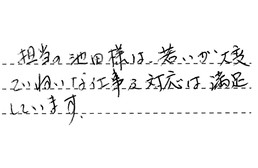 担当の池田様は、若いが大変
ていねいな仕事と対応は満足
しています